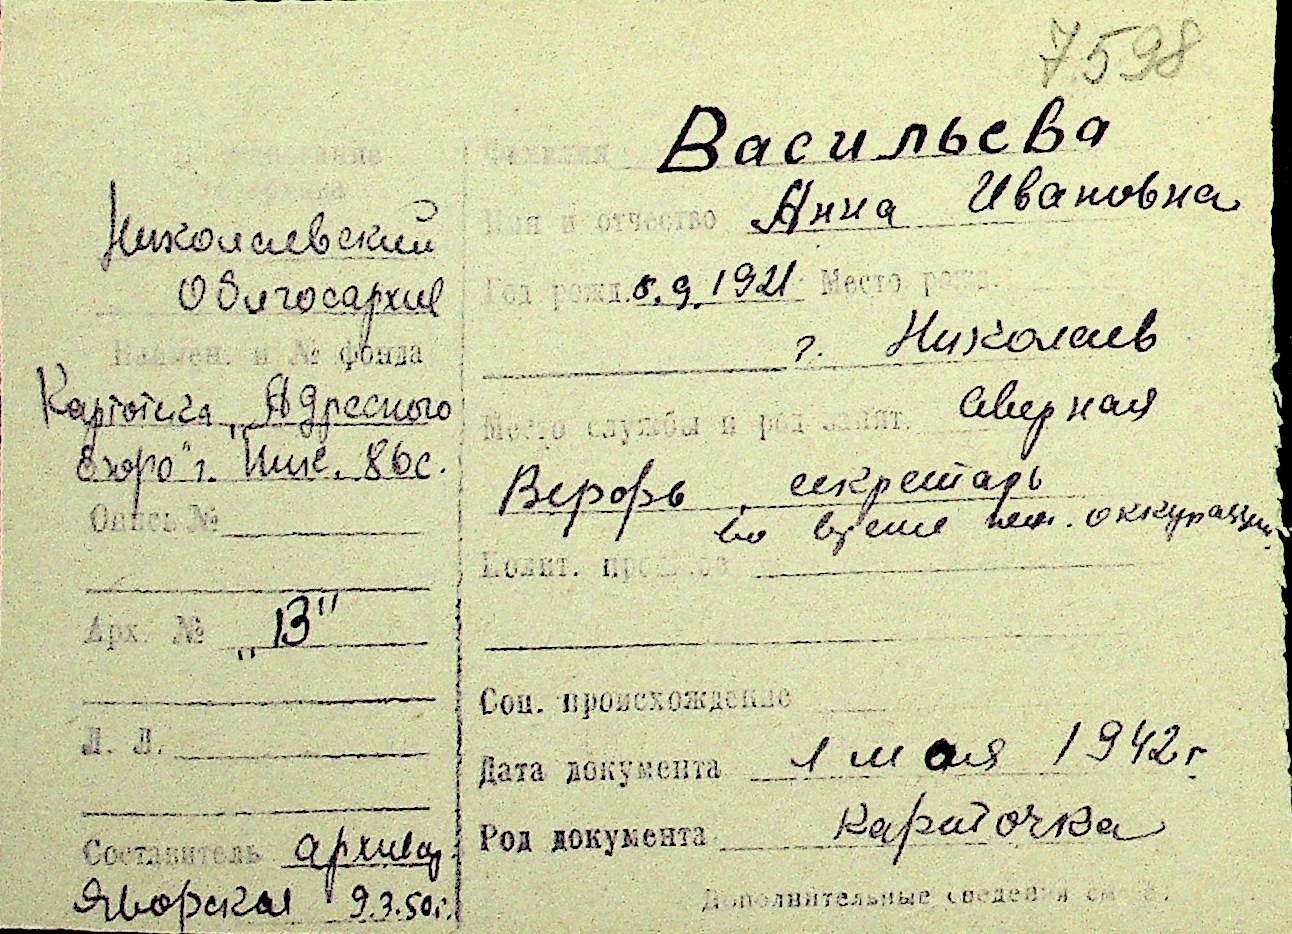 7598
Наименование
Николаевский
Облгосархив
Наимен. и № фонда
Картотека „Адресного
бюро" г. Ник. 86с.
Опись №
Арх. № „В"
Л. Л.
Составитель архивар.
Яворская 9.3.50г.
Фамилия Васильева
Имя и отчество Анна Ивановна
Год рожд. 8.9.1921 Место рожд.
г. Николаев
Место службы и род занят. Северная
Верфь секретарь
во время нем. оккупации
Полит. прошлое
Соц. происхождение
Дата документа 1 мая 1942г
Род документа карточка
Дополнительные сведения см